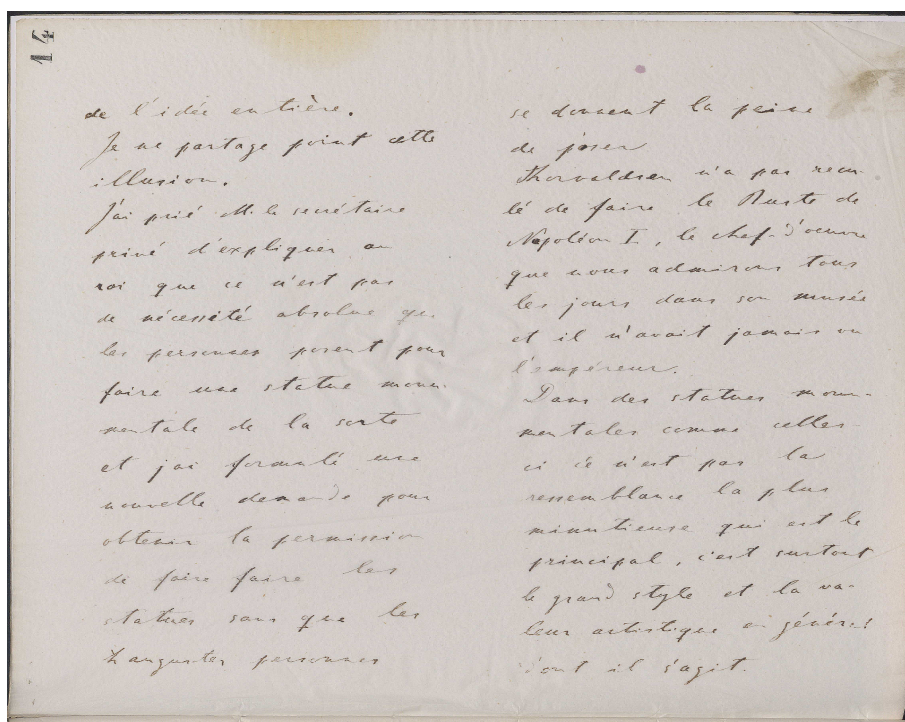 14
de l'idée entière.
Je ne partage point cette
illusion.
J'ai prié M. le secrétaire
privé d'expliquer au
roi que ce n'est pas
de nécessité absolue que
les personnes posent pour
faire une statue monu-
mentale de la sorte
et j'ai formulé une
nouvelle demande pour
obtenir la permission
de faire faire les
statues sans que les
2 augustes personnes
se donnent la peine
de poser
Thorvaldsen n'a pas recu-
lé de faire le Buste de
Napoléon I, le chef-d'oeuvre
que nous admirons tous
les jours dans son musée
et il n'avait jamais vu
l'empéreur.
Dans des statues monu-
mentales comme celles-
ci ce n'est pas la
ressemblance la plus
minutieuse qui est le
principal, c'est surtout
le grand style et la va-
leur artistique en général
dont il s'agit.